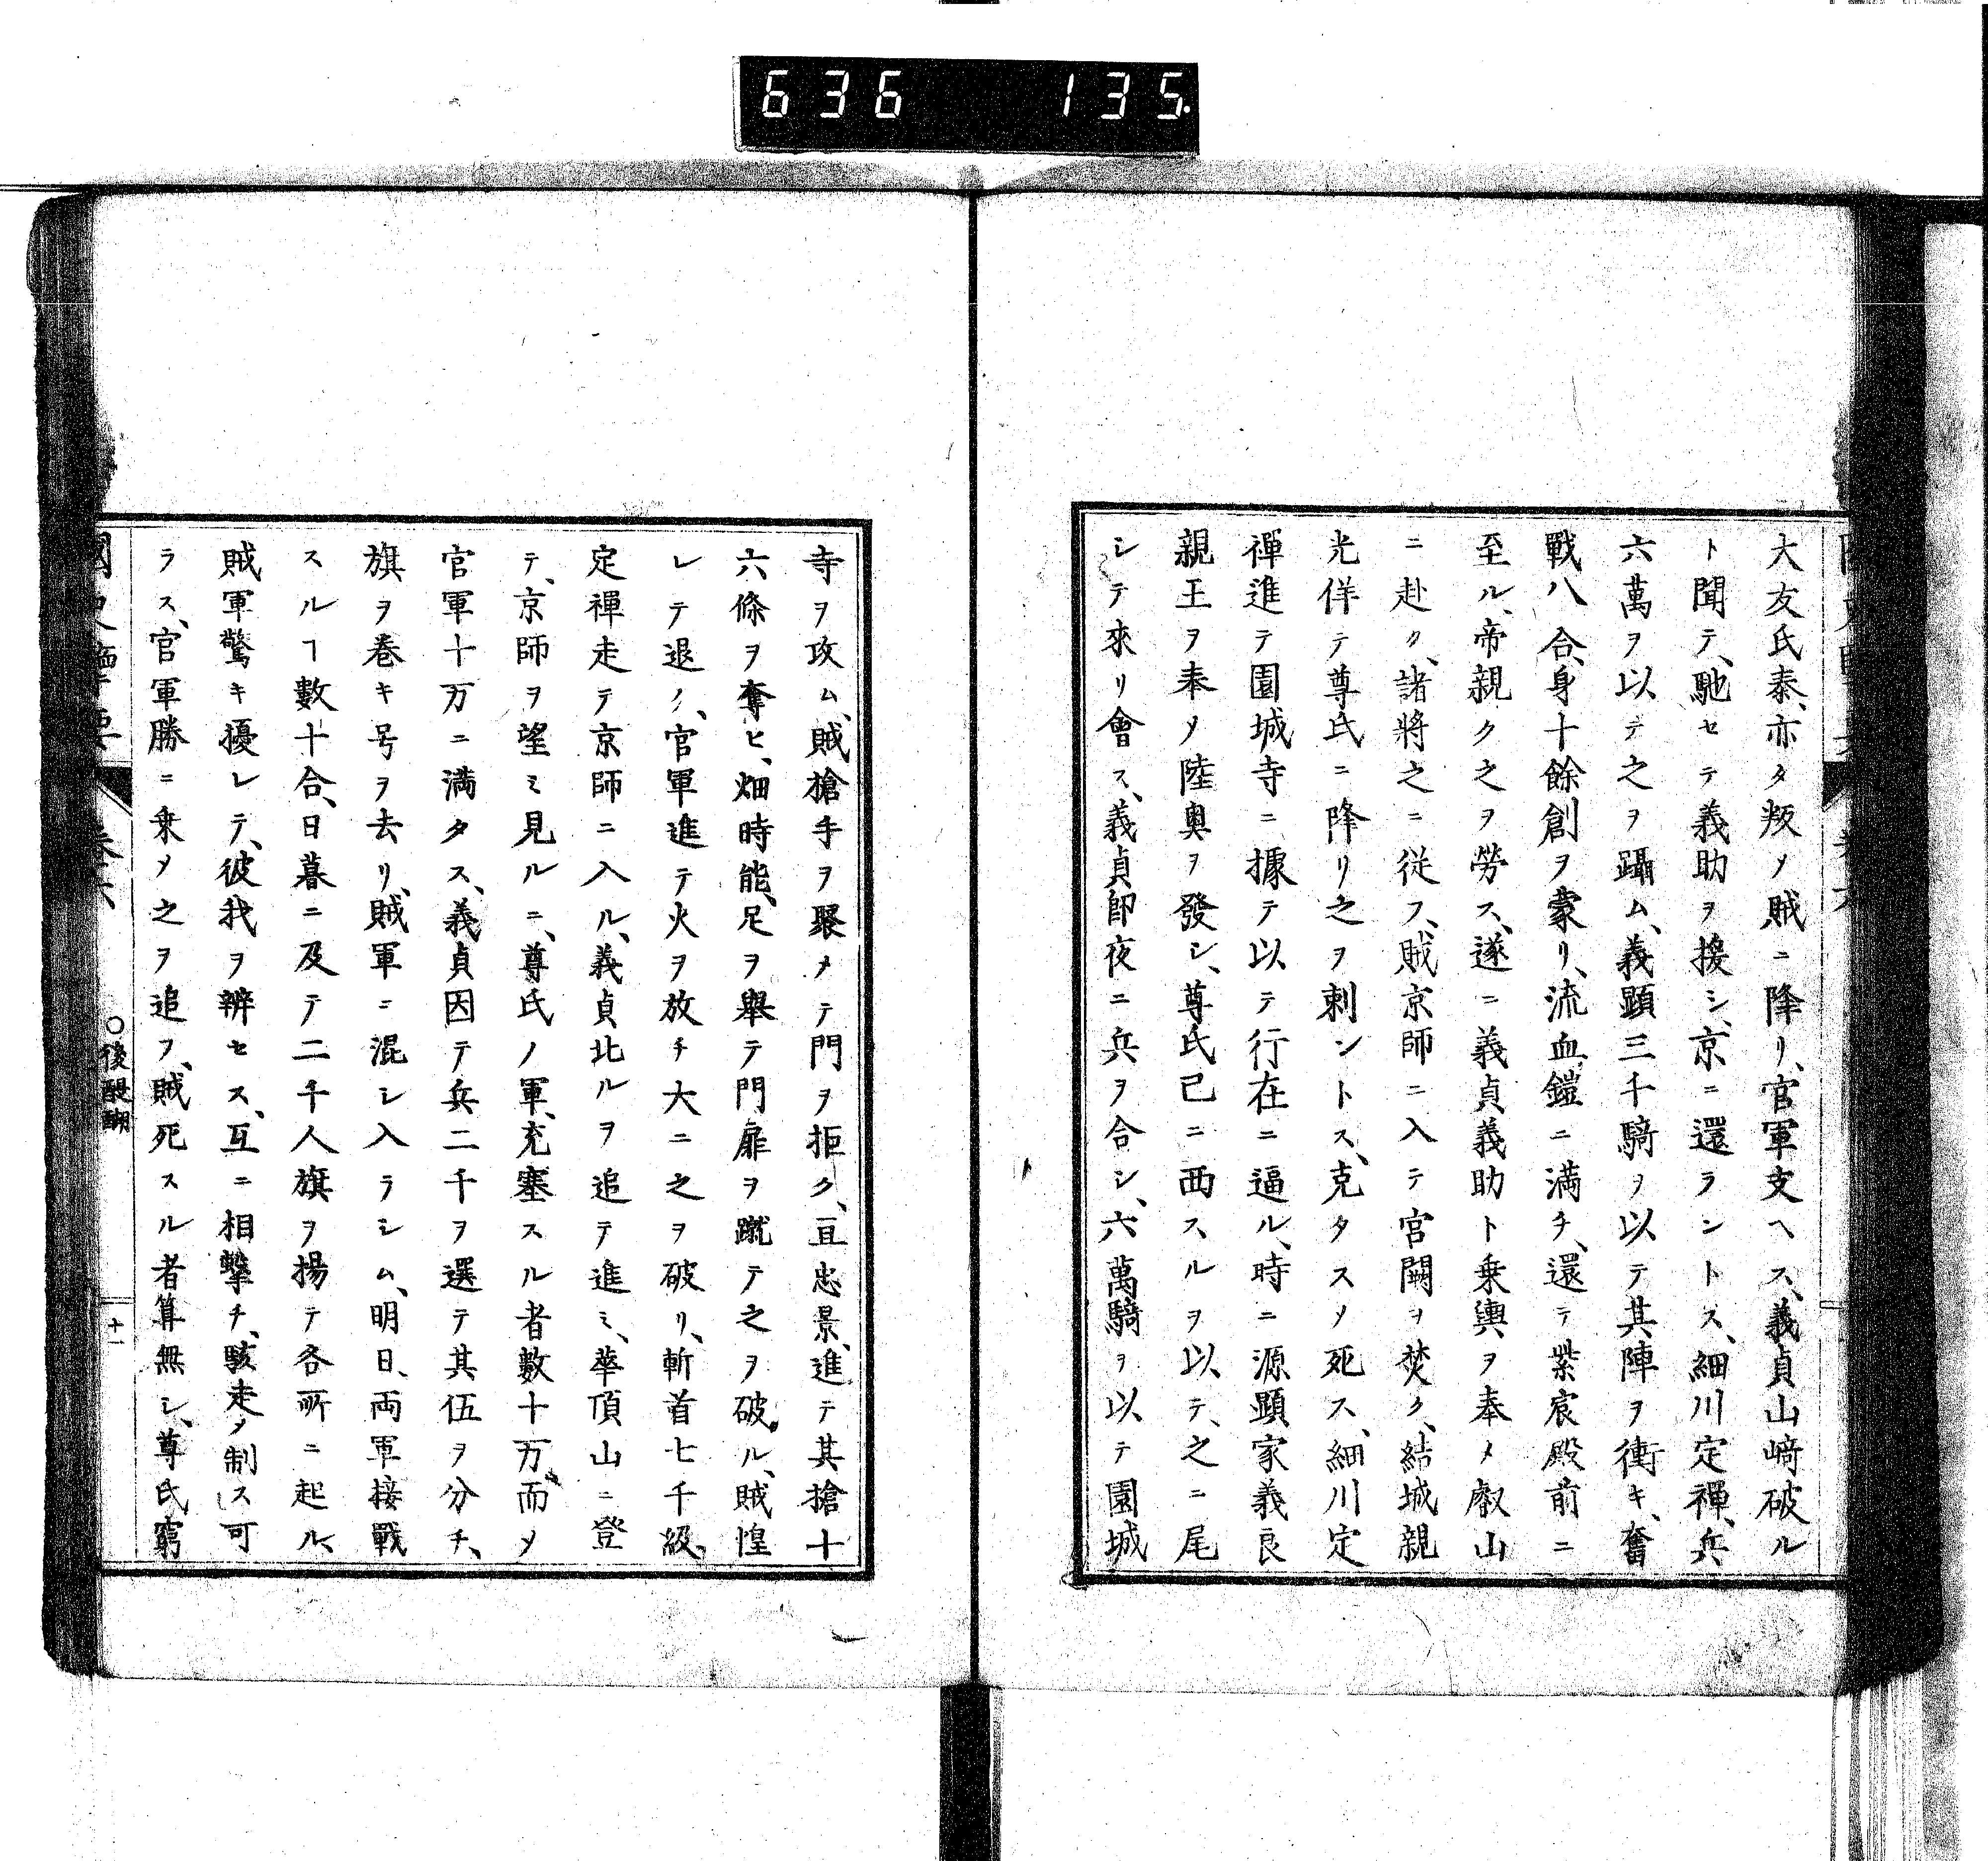 636 135
大友氏泰、亦タ叛ノ賊ニ降リ、官軍支ヘス、義貞山﨑破ル
ト聞テ、馳セテ義助ヲ援シ、京ニ還ラントス、細川定禪、兵
六萬ヲ以テ之ヲ躡ム、義顕三千騎ヲ以テ其陣ヲ衝キ、奮
戰八合、身十餘創ヲ蒙リ、流血鎧ニ満チ、還テ紫宸殿前ニ
至ル、帝親ク之ヲ勞ス、遂ニ義貞義助ト乗輿ヲ奉メ叡山
ニ赴ク、諸將之ニ従フ、賊京師ニ入テ宮闕ヲ焚ク、結城親
光佯テ尊氏ニ降リ之ヲ刺ントス、克タスノ死ス、細川定
禪進テ園城寺ニ據テ以テ行在ニ逼ル、時ニ源顕家義良
親王ヲ奉ノ陸奥ヲ發シ、尊氏已ニ西スルヲ以テ、之ニ尾
シテ來リ會ス、義貞即夜ニ兵ヲ合シ、六萬騎ヲ以テ園城
寺ヲ攻ム、賊槍手ヲ聚メテ門ヲ拒ク、亘忠景、進テ其槍十
六條ヲ奪ヒ、畑時能、足ヲ舉テ門扉ヲ蹴テ之ヲ破ル、賊惶
レテ退ク、官軍進テ火ヲ放チ大ニ之ヲ破リ、斬首七千級、
定禪走テ京師ニ入ル、義貞北ルヲ追テ進ミ、華頂山ニ登
テ、京師ヲ望ミ見ルニ、尊氏ノ軍、充塞スル者數十万、而ノ
官軍十万ニ満タス、義貞因テ兵二千ヲ選テ其伍ヲ分チ、
旗ヲ巻キ号ヲ去リ、賊軍ニ混シ入ラシム、明日、両軍接戰
スルヿ數十合、日暮ニ及テ二千人旗ヲ揚テ各所ニ起ル、
賊軍驚キ擾レテ、彼我ヲ辨セス、互ニ相撃チ、駭走ノ制ス可
ラス、官軍勝ニ乗ノ之ヲ追フ、賊死スル者算無シ、尊氏窮
卷六 〇後醍醐 十一